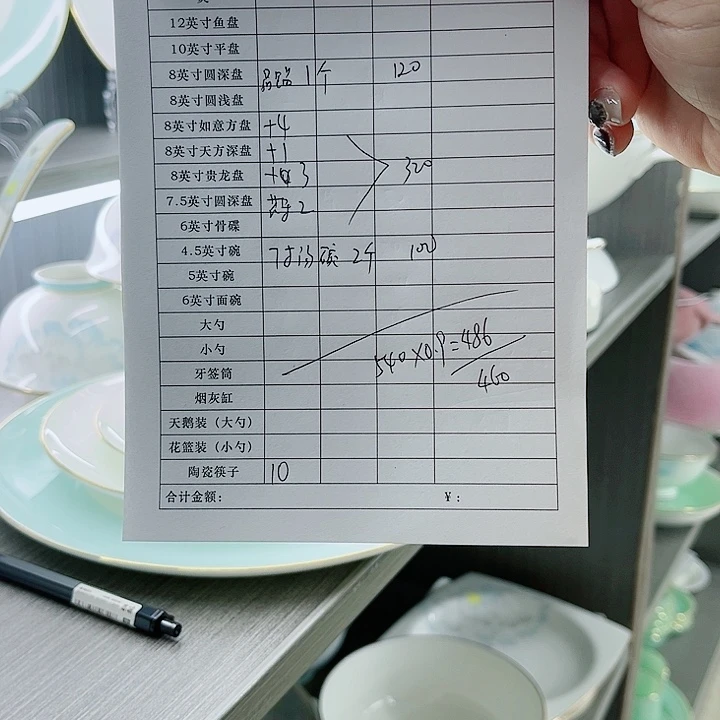 12英寸鱼盘
10英寸平盘
8英寸圆深盘 1个 120
8英寸圆浅盘
8英寸如意方盘 +4
8英寸天方深盘 +1
8英寸贵龙盘 3 320
7.5英寸圆深盘 2
6英寸骨碟
4.5英寸碗 7寸汤碗 2个 100
5英寸碗
6英寸面碗
大勺
小勺 540×0.9=486
牙签筒 460
烟灰缸
天鹅装（大勺）
花篮装（小勺）
陶瓷筷子 10
合计金额： ￥：